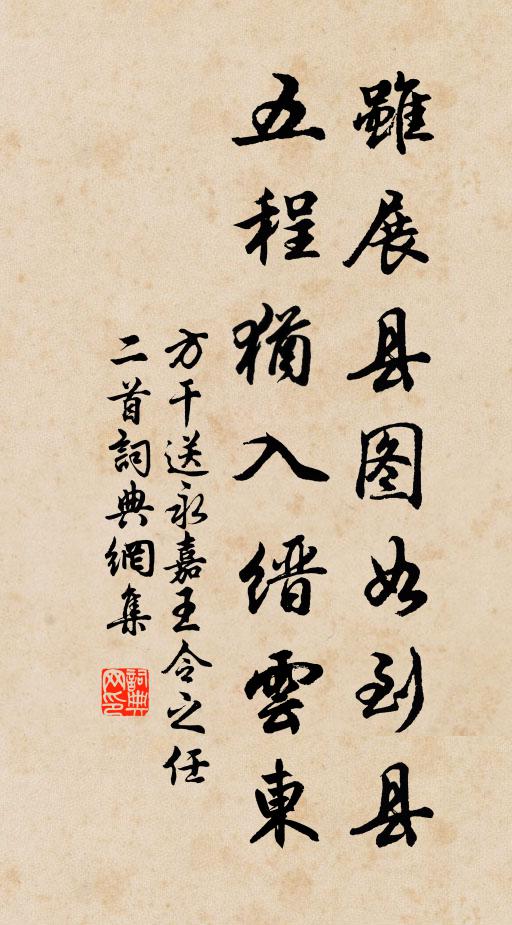 雖展县图如到县
五程猶入缙雲東
方干送永嘉王令之任
二首詞典網集
詞典网印